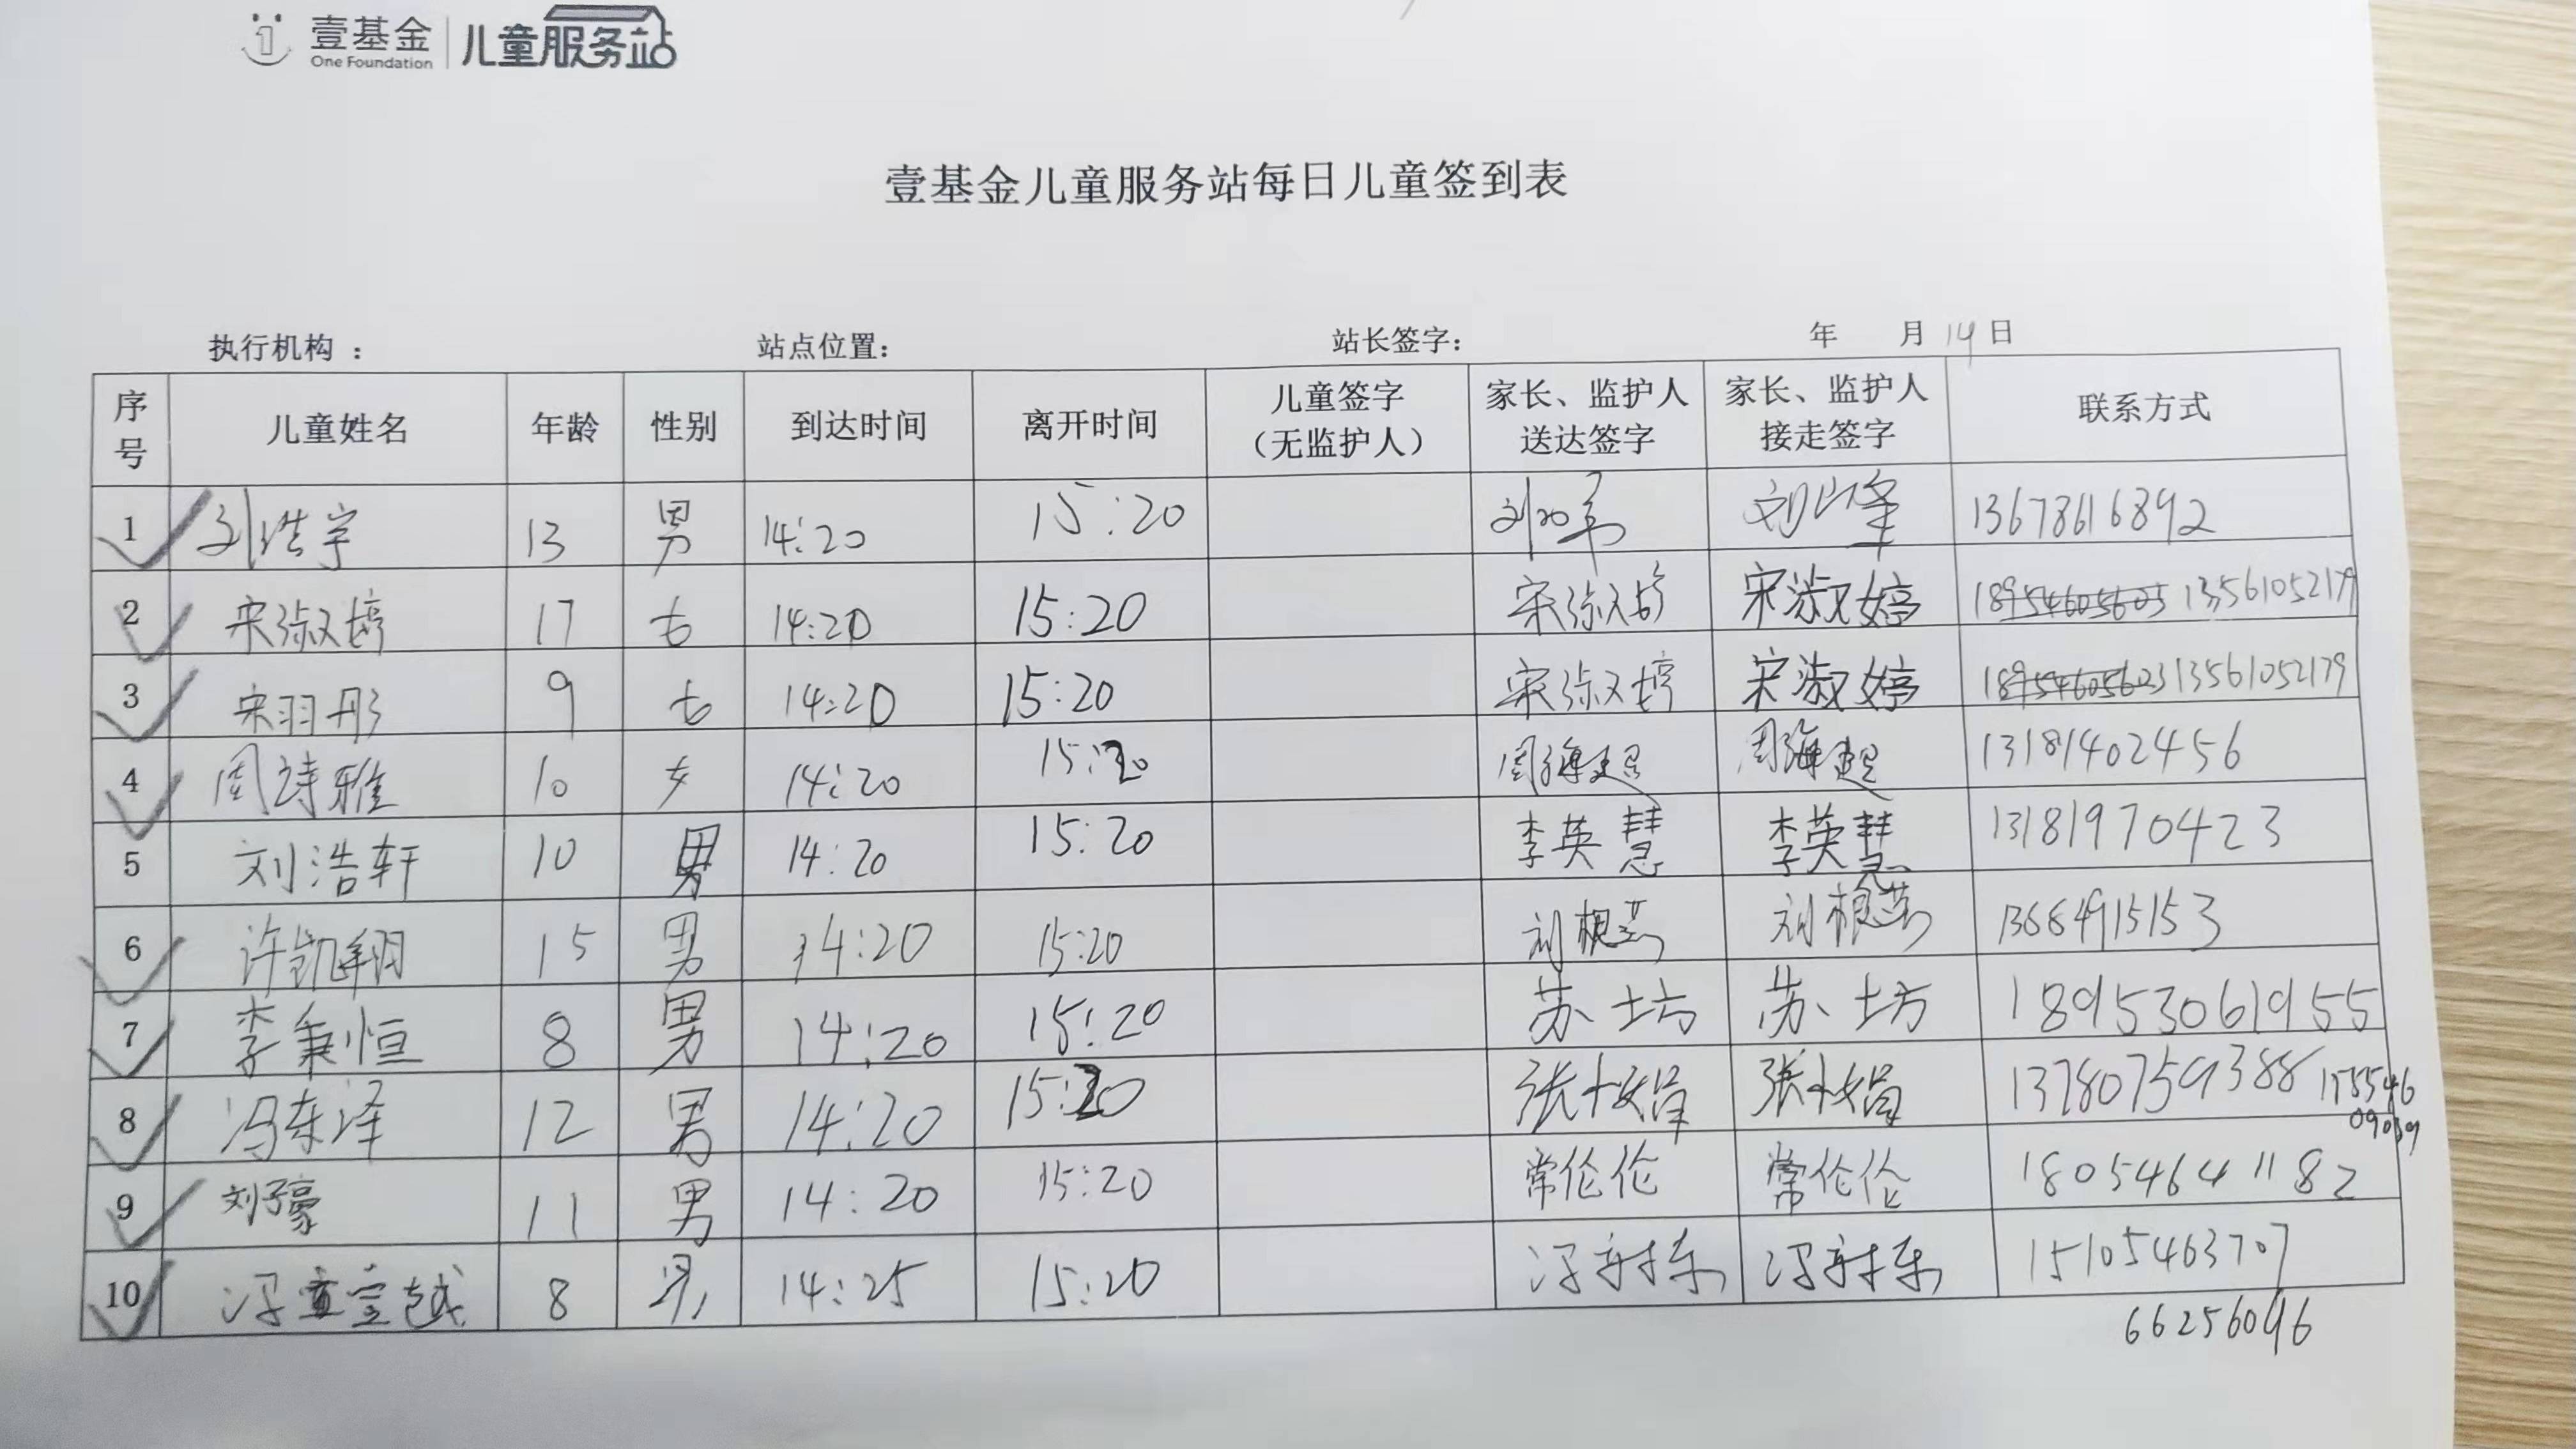 壹基金 儿童服务站
One Foundation
壹基金儿童服务站每日儿童签到表
执行机构 ： 站点位置： 站长签字： 年 月 14 日
序号 儿童姓名 年龄 性别 到达时间 离开时间 儿童签字（无监护人） 家长、监护人送达签字 家长、监护人接走签字 联系方式
1 刘浩宇 13 男 14:20 15:20 13678616892
2 宋淑婷 17 女 14:20 15:20 宋淑婷 宋淑婷 18954605605 13561052179
3 宋羽彤 9 女 14:20 15:20 宋淑婷 宋淑婷 18954605603 13561052179
4 周诗雅 10 女 14:20 15:20 周海超 周海超 13181402456
5 刘浩轩 10 男 14:20 15:20 李英慧 李英慧 13181970423
6 许凯翔 15 男 14:20 15:20 13684915153
7 李秉恒 8 男 14:20 15:20 苏坊 苏坊 18953061955
8 冯东泽 12 男 14:20 15:20 13780759388
9 刘子豪 11 男 14:20 15:20 常伦伦 常伦伦 18054641182
10 冯 越 8 男 14:25 15:20 15105463707
66256096